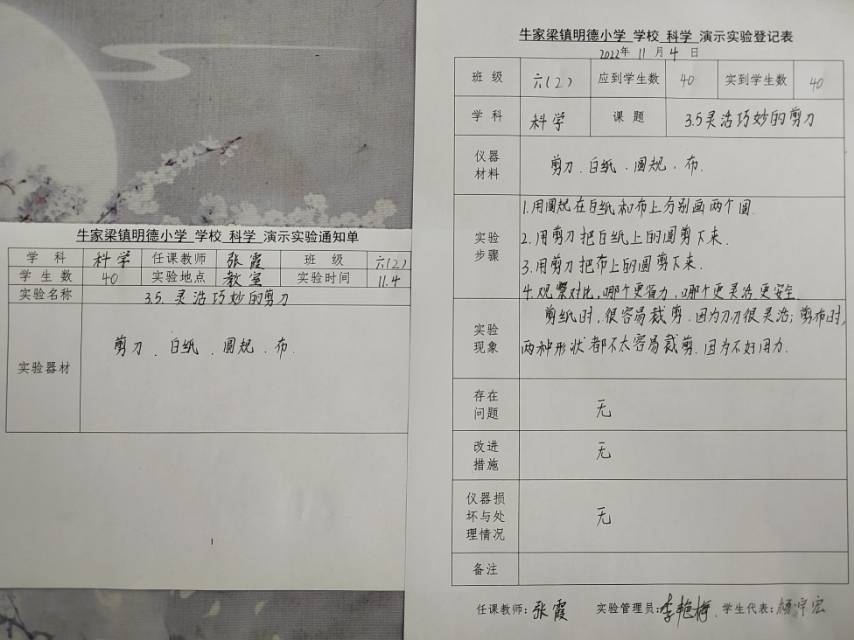 牛家梁镇明德小学 学校 科学 演示实验通知单
学 科 科学 任课教师 张霞 班 级 六(2)
学 生 数 40 实验地点 教室 实验时间 11.4
实验名称 3.5.灵活巧妙的剪刀
实验器材 剪刀、白纸、圆规、布.
牛家梁镇明德小学 学校 科学 演示实验登记表
2022年 11 月 4 日
班 级 六(2) 应到学生数 40 实到学生数 40
学 科 科学 课 题 3.5灵活巧妙的剪刀
仪器
材料
剪刀、白纸、圆规、布.
实验
步骤
1.用圆规在白纸和布上分别画两个圆.
2.用剪刀把白纸上的圆剪下来.
3.用剪刀把布上的圆剪下来.
4.观察对比,哪个更省力,哪个更灵活更安全.
实验
现象
剪纸时,很容易裁剪.因为刀刃很灵活;剪布时,
两种形状都不太容易裁剪.因为不好用力.
存在
问题
无
改进
措施
无
仪器损
坏与处
理情况
无
备注
任课教师: 张霞 实验管理员: 李艳梅 学生代表: 杨宇宏